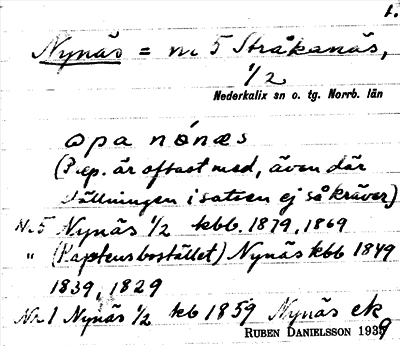 1.
Nynäs = nr 5 Stråkanäs,
1/2
Nederkalix sn o. tg. Norrb. län
opa nónæs
(Prep. är oftast med, även där
ställningen i satsen ej så kräver)
Nr 5 Nynäs 1/2 kbb. 1879, 1869
" (Kaptensbostället) Nynäs kbb 1849
1839, 1829
Nr 1 Nynäs 1/2 kb 1859 Nynäs ek
RUBEN DANIELSSON 1939